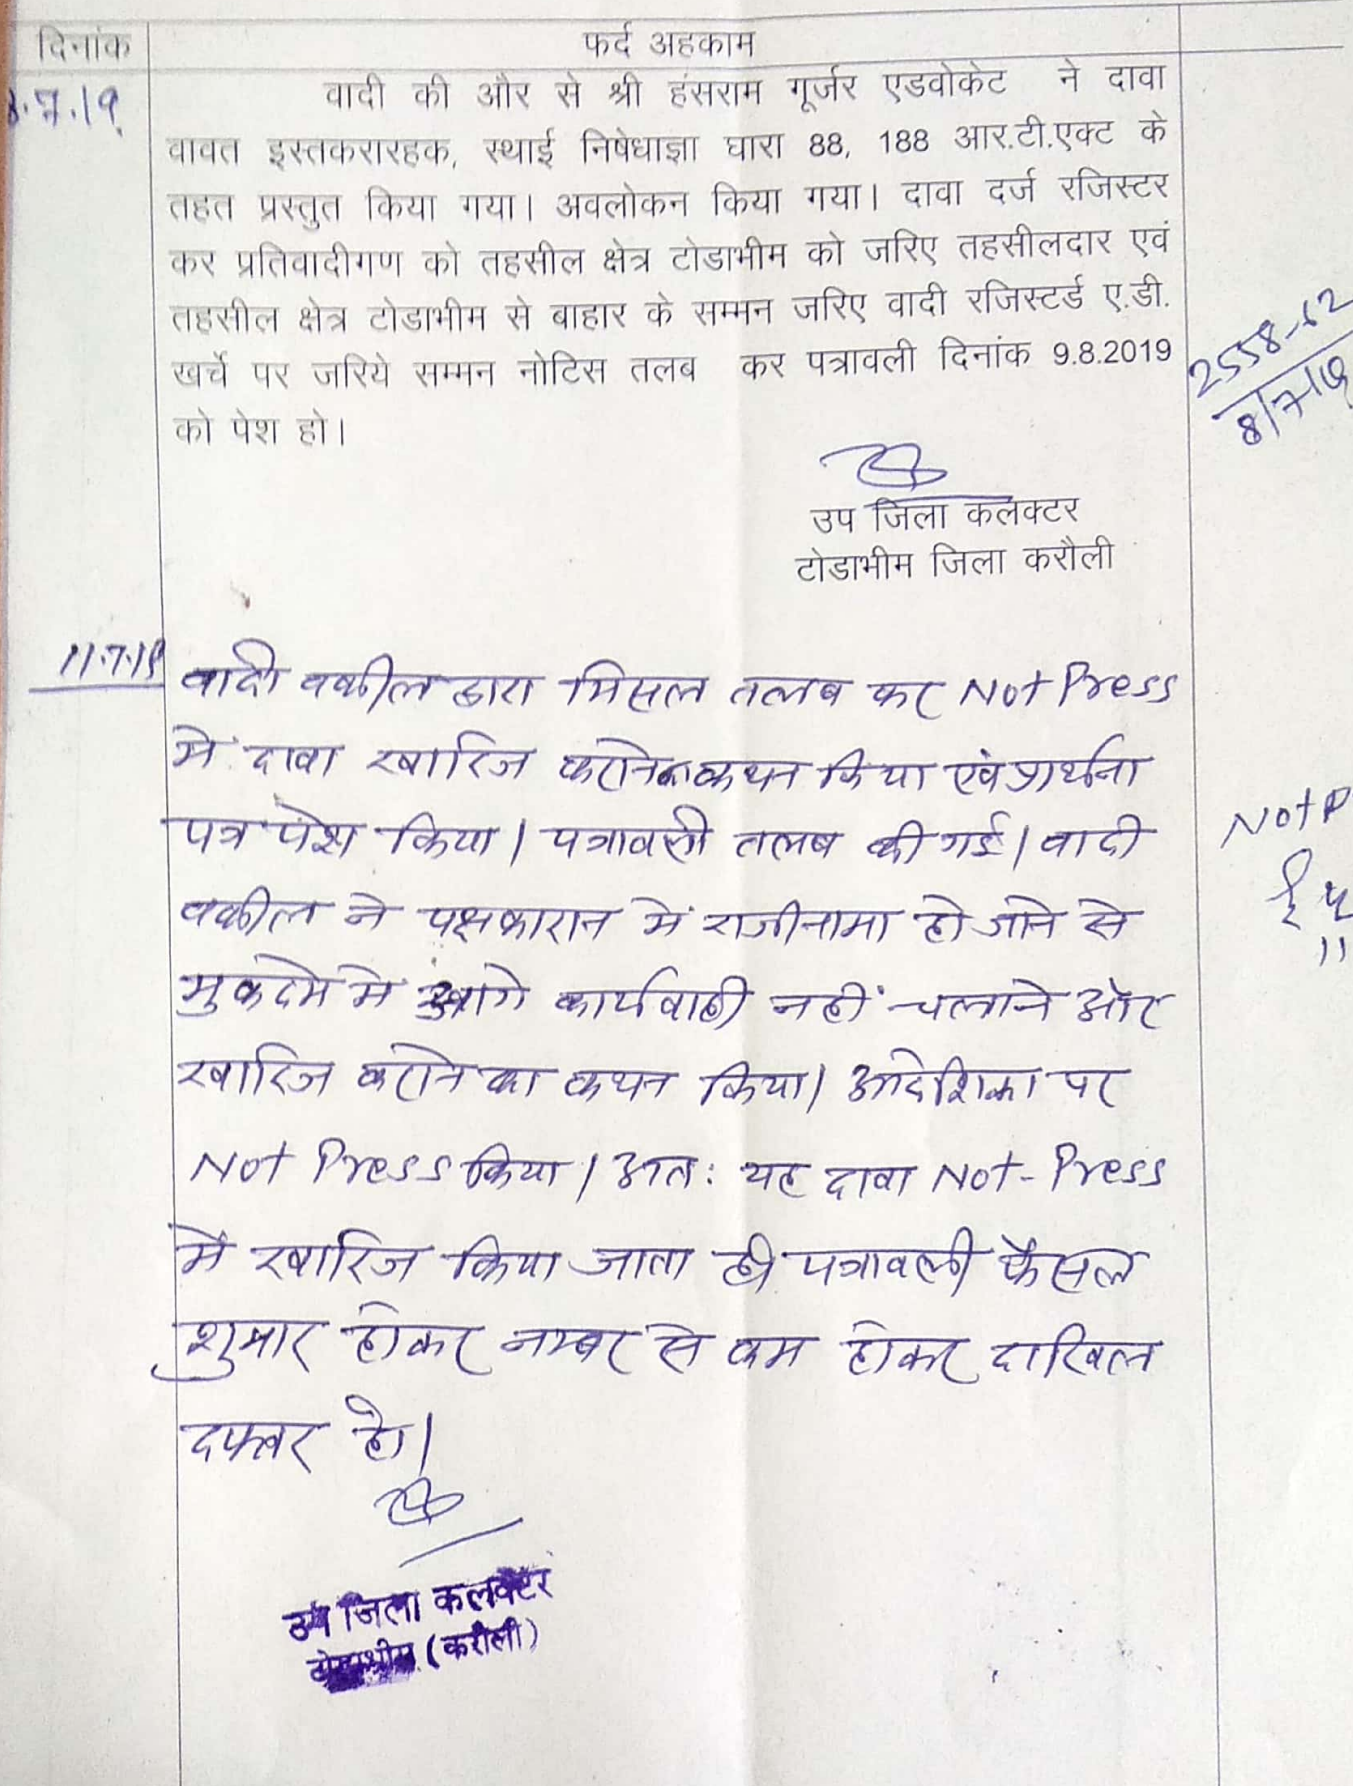 दिनांक
फर्द अहकाम
8.7.19
वादी की और से श्री हंसराम गूर्जर एडवोकेट ने दावा
वावत इस्तकरारहक, स्थाई निषेधाज्ञा घारा 88, 188 आर.टी.एक्ट के
तहत प्रस्तुत किया गया। अवलोकन किया गया। दावा दर्ज रजिस्टर
कर प्रतिवादीगण को तहसील क्षेत्र टोडाभीम को जरिए तहसीलदार एवं
तहसील क्षेत्र टोडाभीम से बाहार के सम्मन जरिए वादी रजिस्टर्ड ए.डी.
खर्चे पर जरिये सम्मन नोटिस तलब कर पत्रावली दिनांक 9.8.2019
को पेश हो।
2558-62
8/7/19
उप जिला कलक्टर
टोडाभीम जिला करौली
11.7.19
वादी वकील द्वारा मिसल तलब कर Not Press
मे दावा खारिज कराने का कथन किया एवं प्रार्थना
पत्र पेश किया। पत्रावली तलब की गई। वादी
वकील ने पक्षकारान में राजीनामा हो जाने से
मुकदमे मे आगे कार्यवाही नहीं चलाने और
खारिज कराने का कथन किया। आदेशिका पर
Not Press किया। अतः यह दावा Not-Press
में खारिज किया जाता है। पत्रावली फैसल
शुमार होकर नम्बर से कम होकर दाखिल
दफ्तर हो।
Not P
11
उप जिला कलक्टर
टोडाभीम (करौली)